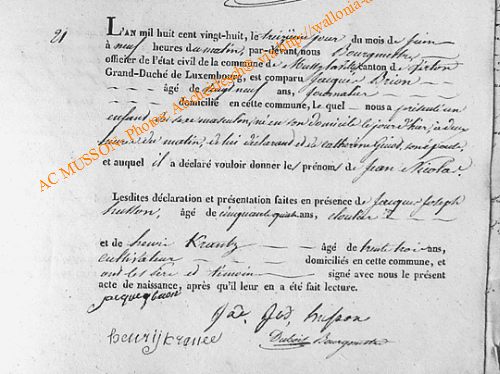 21
L'AN mil huit cent vingt-huit, le treizième jour du mois de juin
à neuf heures du matin, par-devant nous Bourgmestre
officier de l'état civil de la commune de Musson canton de Virton
Grand-Duché de Luxembourg, est comparu jacques Brion
âgé de ans, journalier
domicilié en cette commune, Le quel nous a présenté un
enfant du sexe masculin, né en son domicile le jour d'hier, à deux
heures du matin, de lui déclarant et de catherine son épouse
et auquel il a déclaré vouloir donner les prénoms de Jean Nicolas
Lesdites déclaration et présentation faites en présence de Jacques Joseph
husson, âgé de cinquante ans, cloutier
et de henri Krantz âgé de trente trois ans,
cultivateur domiciliés en cette commune, et
ont les père et témoins signé avec nous le présent
acte de naissance, après qu'il leur en a été fait lecture.
Jac Jos husson
henrij krance
Bourgmestre
AC MUSSON, Photos: via http://wallonia-